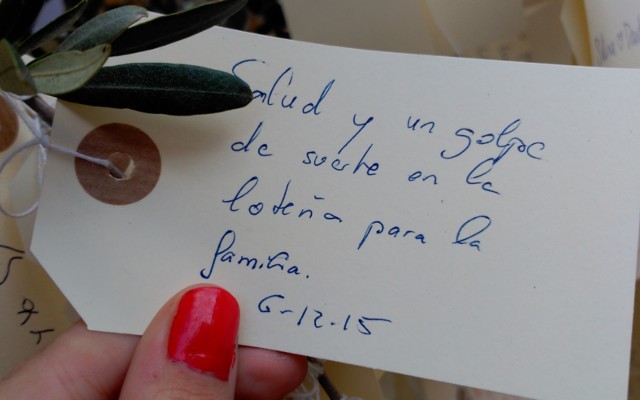 Salud y un golpe
de suerte en la
lotería para la
familia.
6-12-15